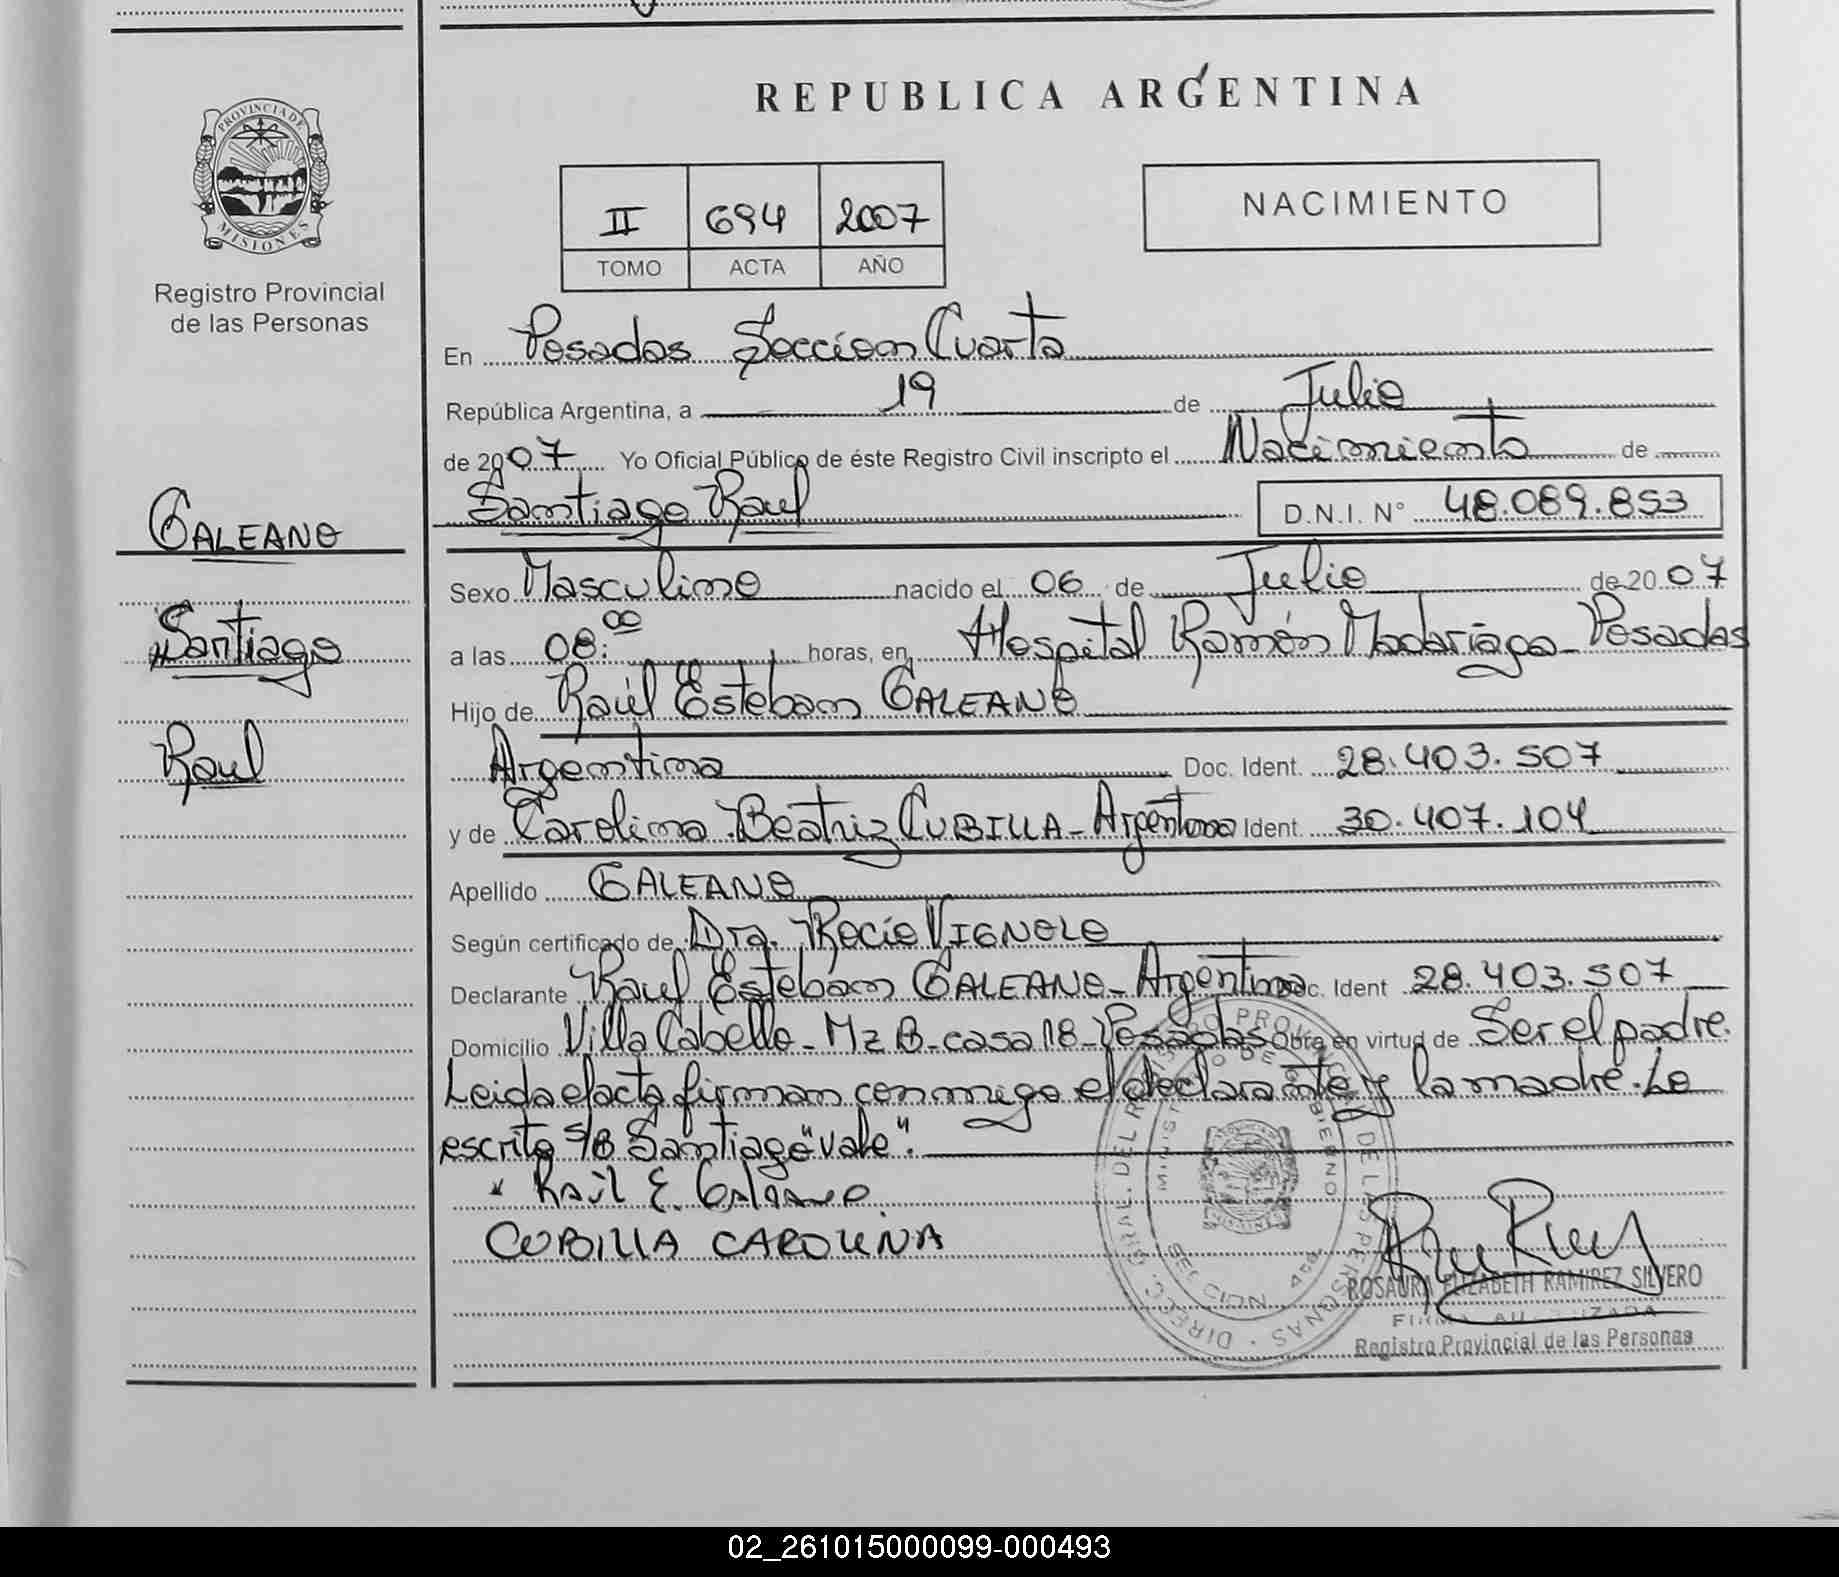 REPUBLICA ARGENTINA
PROVINCIA DE
MISIONES
Registro Provincial
de las Personas
II 694 2007
TOMO ACTA AÑO
NACIMIENTO
En Posadas Seccion Cuarta
República Argentina, a 19 de Julio
de 2007 Yo Oficial Público de éste Registro Civil inscripto el Nacimiento de
Santiago Raul D.N.I. N° 48.089.853
GALEANO
Santiago
Raul
Sexo Masculino nacido el 06 de Julio de 2007
a las 08:00 horas, en Hospital Ramón Madariaga - Posadas
Hijo de Raúl Esteban GALEANO
Argentina Doc. Ident. 28.403.507
y de Carolina Beatriz CUBILLA - Argentina Ident. 30.407.104
Apellido GALEANO
Según certificado de Dra. Rocio VIGNOLO
Declarante Raul Esteban GALEANO - Argentina Doc. Ident 28.403.507
Domicilio Villa Cabello - Mz B - casa 18 - Posadas Obra en virtud de Ser el padre.
Leida el acta firman conmigo el declarante y la madre. Lo
escrito S/B Santiago "vale".
Raúl E. Galeano
CUBILLA CAROLINA
DIRECC. GRAL. DEL REGISTRO PROVINCIAL DE LAS PERSONAS
MINISTERIO DE GOBIERNO
ROSAURA ELIZABETH RAMIREZ SILVERO
FIRMA AUTORIZADA
Registro Provincial de las Personas
02_261015000099-000493